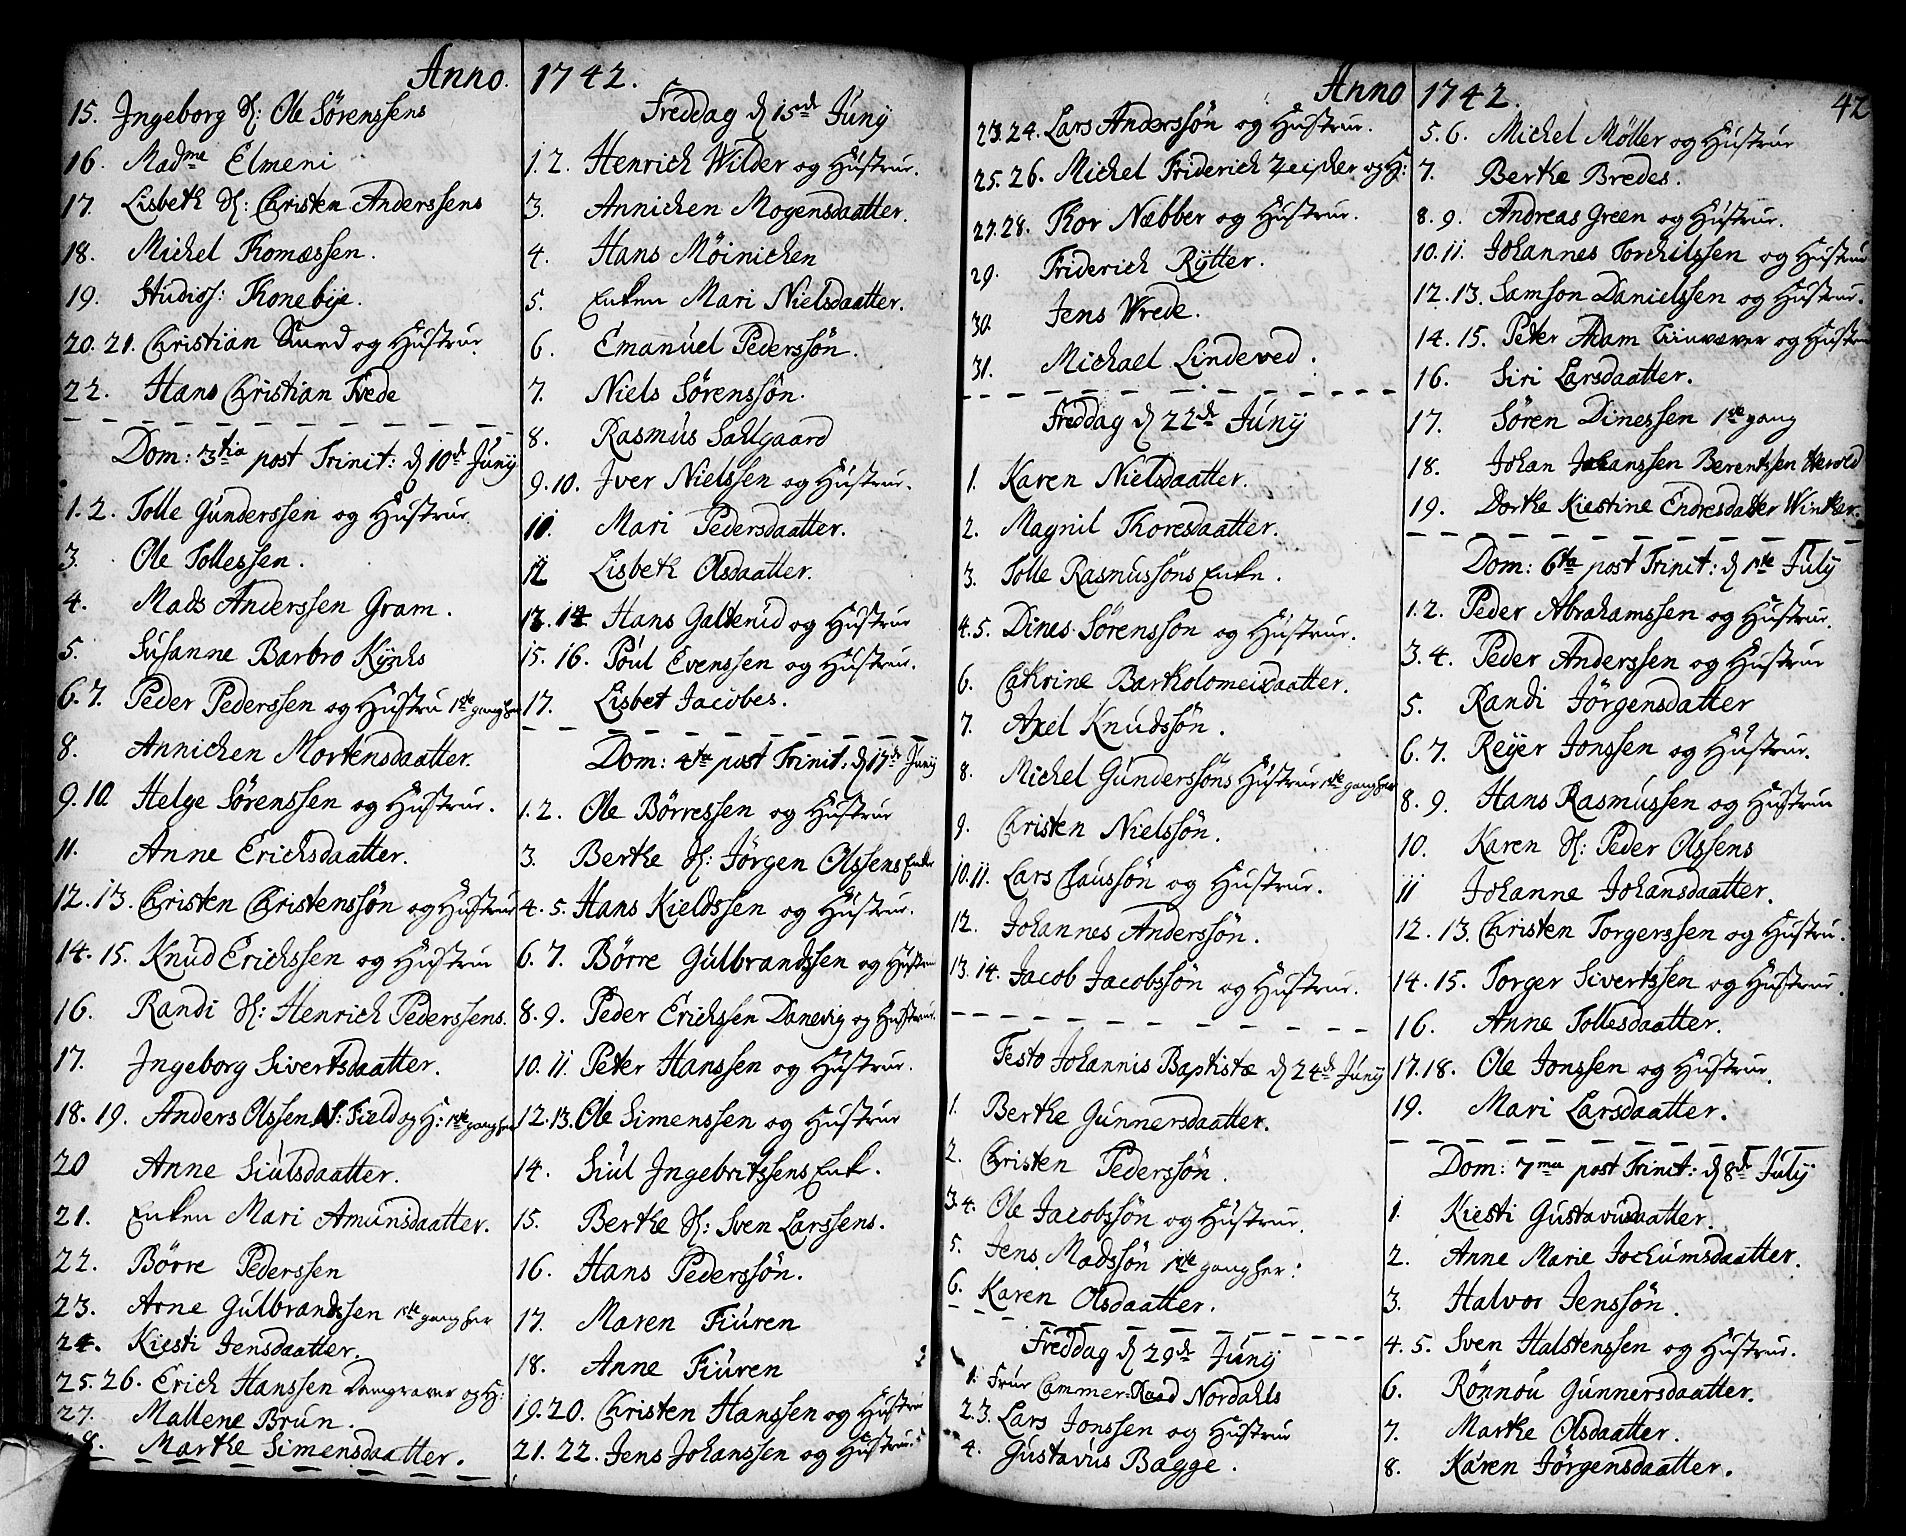 Anno 1742.
15. Jngeborg S: Ole Sørenssens
16. Madme Elmeni
17. Lisbeth S: Christen Anderssens
18. Michel Thomæssen.
19. Studios: Thonebye.
20. 21. Christian Smed og Hustrue
22. Hans Christian Trede
Dom: 3tia post Trinit: d 10de Junij
1. 2. Tolle Gunderssen og Hustrue
3. Ole Tollessen.
4. Mads Anderssen Gram.
5. Susanne Barbro Kynhs
6. 7. Peder Pederssen og Hustru 1ste gang her
8. Annichen Mortensdaatter.
9. 10 Helge Sørenssen og Hustrue.
11. Anne Erichsdaatter.
12. 13. Christen Christenssøn og Hustrue
14. 15. Knud Erichssen og Hustrue
16. Randi S: Henrich Pederssens.
17. Jngeborg Sivertsdaatter.
18. 19. Anders Olssen N: Field og H: 1ste gang her
20 Anne Siulsdaatter.
21. Enken Mari Amunsdaatter.
22. Børre Pederssen
23. Arne Gulbrandssen 1ste gang her
24. Kiesti Jensdaatter.
25. 26. Erich Hanssen Domgraver og H:
27. Mallene Brun.
28. Marthe Simensdaatter.
Freddag d 15de Junij
1. 2. Henrich Wilder og Hustrue.
3. Annichen Mogensdaatter.
4. Hans Møinichen
5. Enken Mari Nielsdaatter.
6. Emanuel Pederssøn.
7. Niels Sørenssøn.
8. Rasmus Sahlgaard
9. 10. Jver Nielssen og Hustrue.
11. Mari Pedersdaatter.
12 Lisbeth Olsdaatter.
13. 14 Hans Galterud og Hustrue
15. 16. Poul Evenssen og Hustrue.
17. Lisbet Jacobes.
Dom: 4ta post Trinit: d 17de Junij
1. 2. Ole Børressen og Hustrue
3. Berthe S: Jørgen Olssens Enke
4. 5. Hans Kieldssen og Hustrue.
6. 7. Børre Gulbrandssen og Hustrue
8. 9. Peder Erichssen Danevig og Hustrue.
10. 11. Peter Hanssen og Hustrue.
12. 13. Ole Simenssen og Hustrue
14. Siul Jngebritssens Enk.
15. Berthe S: Sven Larssens.
16. Hans Pederssøn.
17. Maren Fiuren
18. Anne Fiuren
19. 20. Christen Hanssen og Hustrue
21. 22. Jens Johanssen og Hustrue.
Anno 1742.
42
23. 24. Lars Anderssøn og Hustrue.
25. 26. Michel Friderich Zeisher og H:
27. 28. Thor Næbber og Hustrue.
29. Friderich Rytter.
30. Jens Wrede.
31. Michael Lindeved.
Freddag d 22de Junij
1. Karen Nielsdaatter.
2. Magnil Thoresdaatter.
3. Tolle Rasmussøns Enke.
4. 5. Dines Sørenssøn og Hustrue.
6. Cathrine Bartholomeidaatter.
7. Axel Knudssøn.
8. Michel Gunderssøns Hustrue 1ste gang her
9. Christen Nielssøn.
10. 11. Lars Claussøn og Hustrue.
12. Johannes Anderssøn.
13. 14. Jacob Jacobssøn og Hustrue.
Festo Johannis Baptistæ d 24de Junij
1. Berthe Gunnersdaatter.
2. Christen Pederssøn.
3. 4. Ole Jacobssøn og Hustrue.
5. Jens Madssøn 1ste gang her:
6. Karen Olsdaatter.
Freddag d 29de Junij
1. Frur Cammer-Raad Nordahls
2. 3. Lars Jonssen og Hustrue
4. Gustavus Bagge.
5. 6. Michel Møller og Hustrue
7. Berthe Bredes.
8. 9. Andreas Green og Hustrue.
10. 11. Johannes Torchilssen og Hustrue
12. 13. Samson Danielssen og Hustrue.
14. 15. Peter Adam Tiinvæver og Hustrue
16. Siri Larsdaatter.
17. Søren Dinessen 1ste gang
18. Johan Johanssen Berentssen Herold
19. Dorthe Kiestine Endresdatter Winther.
Dom: 6ta post Trinit: d 1ste July
1. 2. Peder Abrahamssen og Hustrue.
3. 4. Peder Anderssen og Hustrue
5. Randi Jørgensdatter
6. 7. Reyer Jonssen og Hustrue.
8. 9. Hans Rasmussen og Hustrue
10. Karen S: Peder Olssens
11 Johanne Johansdaatter.
12. 13. Christen Torgerssen og Hustru.
14. 15. Torger Sivertssen og Hustrue.
16. Anne Tollesdaatter.
17. 18. Ole Jonssen og Hustrue.
19. Mari Larsdaatter.
Dom: 7ma post Trinit: d 8de July
1. Kiesti Gustavusdaatter.
2. Anne Marie Jochumsdaatter.
3. Halvor Jenssøn.
4. 5. Sven Halstenssen og Hustrue.
6. Rønnou Gunnersdaatter.
7. Marthe Olsdaatter.
8. Karen Jørgensdaatter.